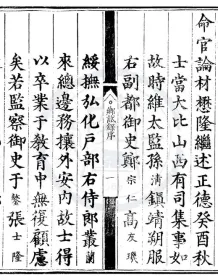 命官論材懋隆繼述正德癸酉秋
士當大比山西有司集事如
故時維太監孫清鎮靖朔服
右副都御史鄭宗仁高友璣
錄序 一
綏撫弘化戶部右侍郎叢蘭
來總邊務攘外安內故士得
以卒業于教育中無復顧慮
矣若監察御史于鏊張士隆